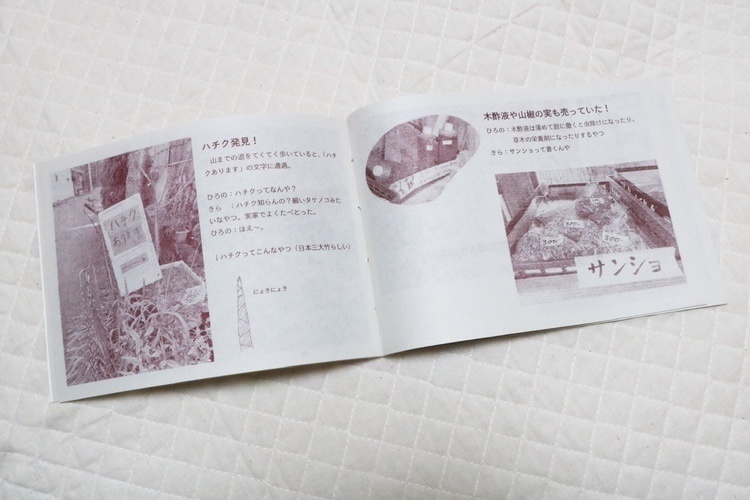 ハチク発見！
山までの道をてくてく歩いていると、「ハチ
クあります」の文字に遭遇。
ひろの：ハチクってなんや？
きら　：ハチク知らんの？細いタケノコみた
いなやつ。実家でよくたべとった。
ひろの：ほえ〜。
↓ハチクってこんなやつ（日本三大竹らしい）
にょきにょき
ハチク
あります
木酢液や山椒の実も売っていた！
ひろの：木酢液は薄めて庭に撒くと虫除けになったり、
草木の栄養剤になったりするやつ
きら：サンショって書くんや
サンショ